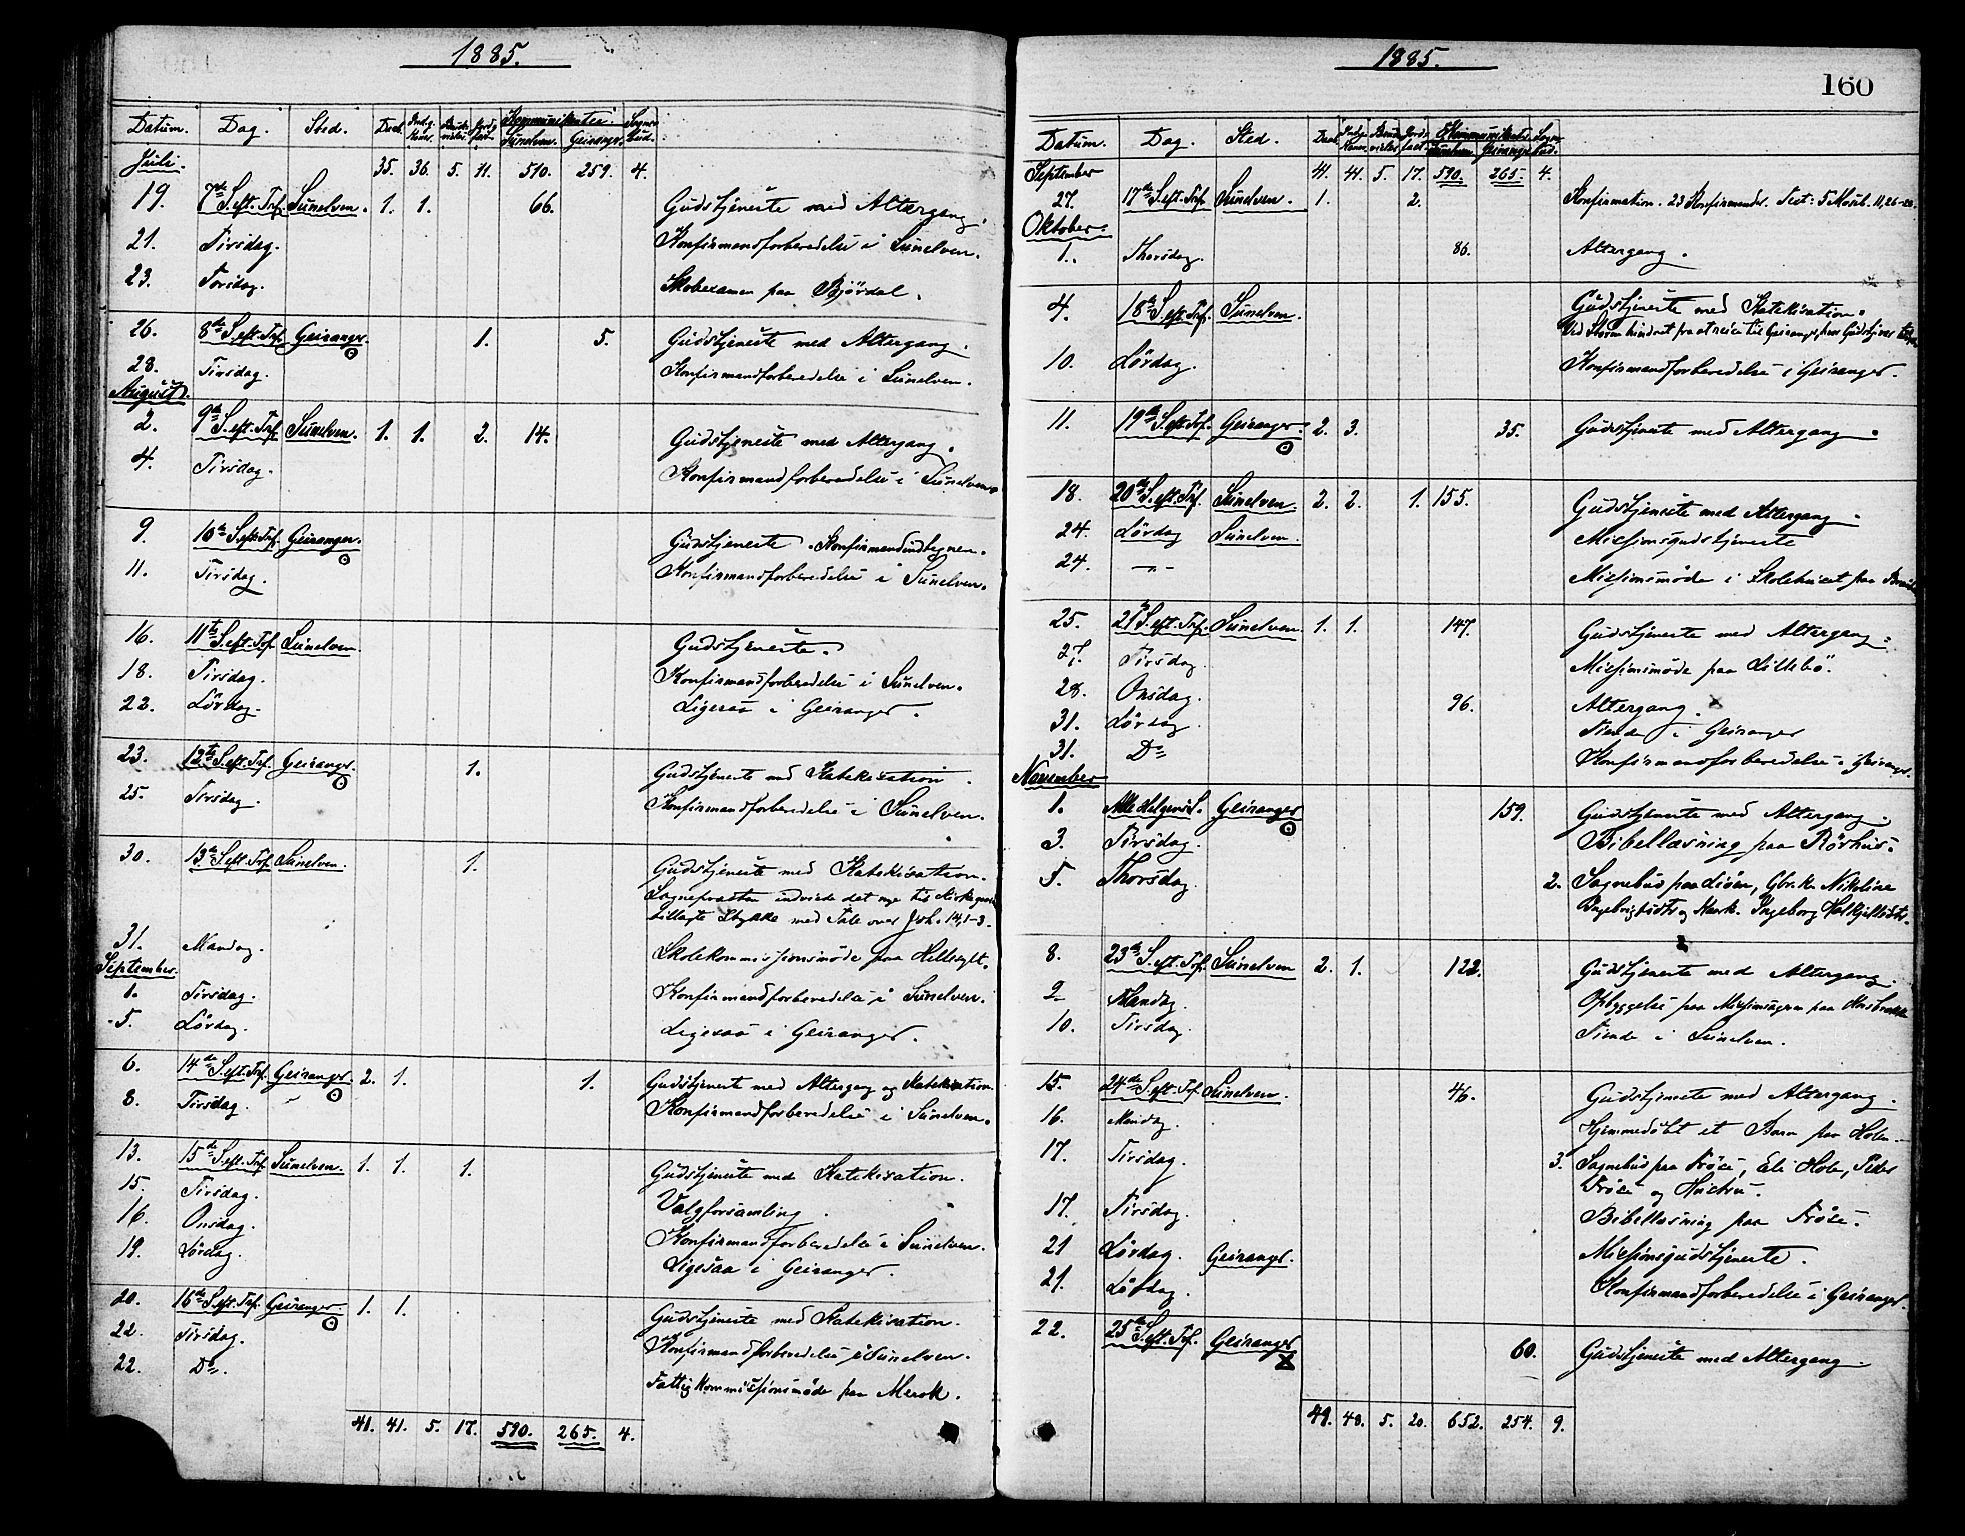 1885.
Datum. Dag. Sted. Daab. Indg. Kone. Brude- vielse. Jord- fæst. Kommunikanter. Sunelven. Geiranger. Sogne- bud.
Juli. 35. 36. 5. 11. 510. 259. 4.
19. 7de S. eft. Tref. Sunelven. 1. 1. 66. Gudstjeneste med Altergang.
21. Tirsdag. Konfirmandforberedelse i Sunelven.
23. Torsdag. Skoleexamen paa Bjørdal.
26. 8de S. eft. Tref. Geiranger. 1. 5. Gudstjeneste med Altergang.
28. Tirsdag. Konfirmandforberedelse i Sunelven.
August.
2. 9de S. eft. Tref. Sunelven. 1. 1. 2. 14. Gudstjeneste med Altergang.
4. Tirsdag. Konfirmandforberedelse i Sunelven.
9. 10de S. eft. Tref. Geiranger. Gudstjeneste. Konfirmandindtegnen.
11. Tirsdag. Konfirmandforberedelse i Sunelven.
16. 11te S. eft. Tref. Sunelven. Gudstjeneste.
18. Tirsdag. Konfirmandforberedelse i Sunelven.
22. Lördag. Ligesaa i Geiranger.
23. 12te S. eft. Tref. Geiranger. 1. Gudstjeneste med Katekisation.
25. Tirsdag. Konfirmandforberedelse i Sunelven.
30. 13de S. eft. Tref. Sunelven. 1. Gudstjeneste med Katekisation.
Sognepræsten indviede det nye til Kirkegaarden
tillagte Stykke med Tale over Joh. 14,1-3.
31. Mandag. Skolekommissionsmöde paa Hellesylt.
September.
1. Tirsdag. Konfirmandforberedelse i Sunelven.
5. Lördag. Ligesaa i Geiranger.
6. 14de S. eft. Tref. Geiranger. 2. 1. 1. Gudstjeneste med Altergang og Katekisation.
8. Tirsdag. Konfirmandforberedelse i Sunelven.
13. 15de S. eft. Tref. Sunelven. 1. 1. 1. Gudstjeneste med Katekisation.
15. Tirsdag. Valgforsamling.
16. Onsdag. Konfirmandforberedelse i Sunelven.
19. Lördag. Ligesaa i Geiranger.
20. 16de S. eft. Tref. Geiranger. 1. 1. Gudstjeneste med Katekisation.
22. Tirsdag. Konfirmandforberedelse i Sunelven.
22. Do. Fattigkommissionsmöde paa Merok.
41. 41. 5. 17. 590. 265. 4.
1885.
160
Datum. Dag. Sted. Daab. Indg. Kone. Brude- vielse. Jord- fæst. Kommunikanter. Sunelven. Geiranger. Sogne- bud.
September 41. 41. 5. 17. 590. 265. 4.
27. 17de S. eft. Tref. Sunelven. 1. 2. Konfirmation. 23 Konfirmander. Text: 5 Moseb. 11,26-28.
Oktober.
1. Thorsdag. 86. Altergang.
4. 18de S. eft. Tref. Sunelven. Gudstjeneste med Katekisation.
Ved Storm hindret fra at reise til Geiranger, hvor Gudstjeneste
10. Lördag. Konfirmandforberedelse i Geiranger.
11. 19de S. eft. Tref. Geiranger. 2. 3. 35. Gudstjeneste med Altergang.
18. 20de S. eft. Tref. Sunelven. 2. 2. 1. 155. Gudstjeneste med Altergang.
24. Lördag Sunelven. Missionsgudstjeneste
24. -"- Missionsmöde i Skolehuset paa
25. 21de S. eft. Tref. Sunelven. 1. 1. 147. Gudstjeneste med Altergang.
27. Tirsdag. Missionsmöde paa Lillebö.
28. Onsdag. 96. Altergang.
31. Lördag. Tiende i Geiranger
31. Do Konfirmandforberedelse i Geiranger.
November
1. Alle Helgens S. Geiranger 159. Gudstjeneste med Altergang.
3. Tirsdag. Bibellæsning paa Rörhus.
5. Thorsdag. 2. Sognebud paa Liöen, Gbrk. Nikoline
Ingebrigtsdtr og Ingeborg
8. 23de S. eft. Tref. Sunelven 2. 1. 122. Gudstjeneste med Altergang.
9. Mandag. Opbyggelse paa
10. Tirsdag. Tiende i Sunelven.
15. 24de S. eft. Tref. Sunelven. 46. Gudstjeneste med Altergang.
16. Mandag. Hjemmedöbt et Barn paa Hole.
17. Tirsdag. 3. Sognebud paa Fröise, Eli Hole, Peder
Fröise og Hustru.
17. Tirsdag. Bibellæsning paa Fröise.
21 Lördag. Geiranger. Missionsgudstjeneste.
21. Lördag. Konfirmandforberedelse i Geiranger.
22. 25de S. eft. Tref. Geiranger 60. Gudstjeneste med Altergang.
49. 48. 5. 20. 652. 254. 9.